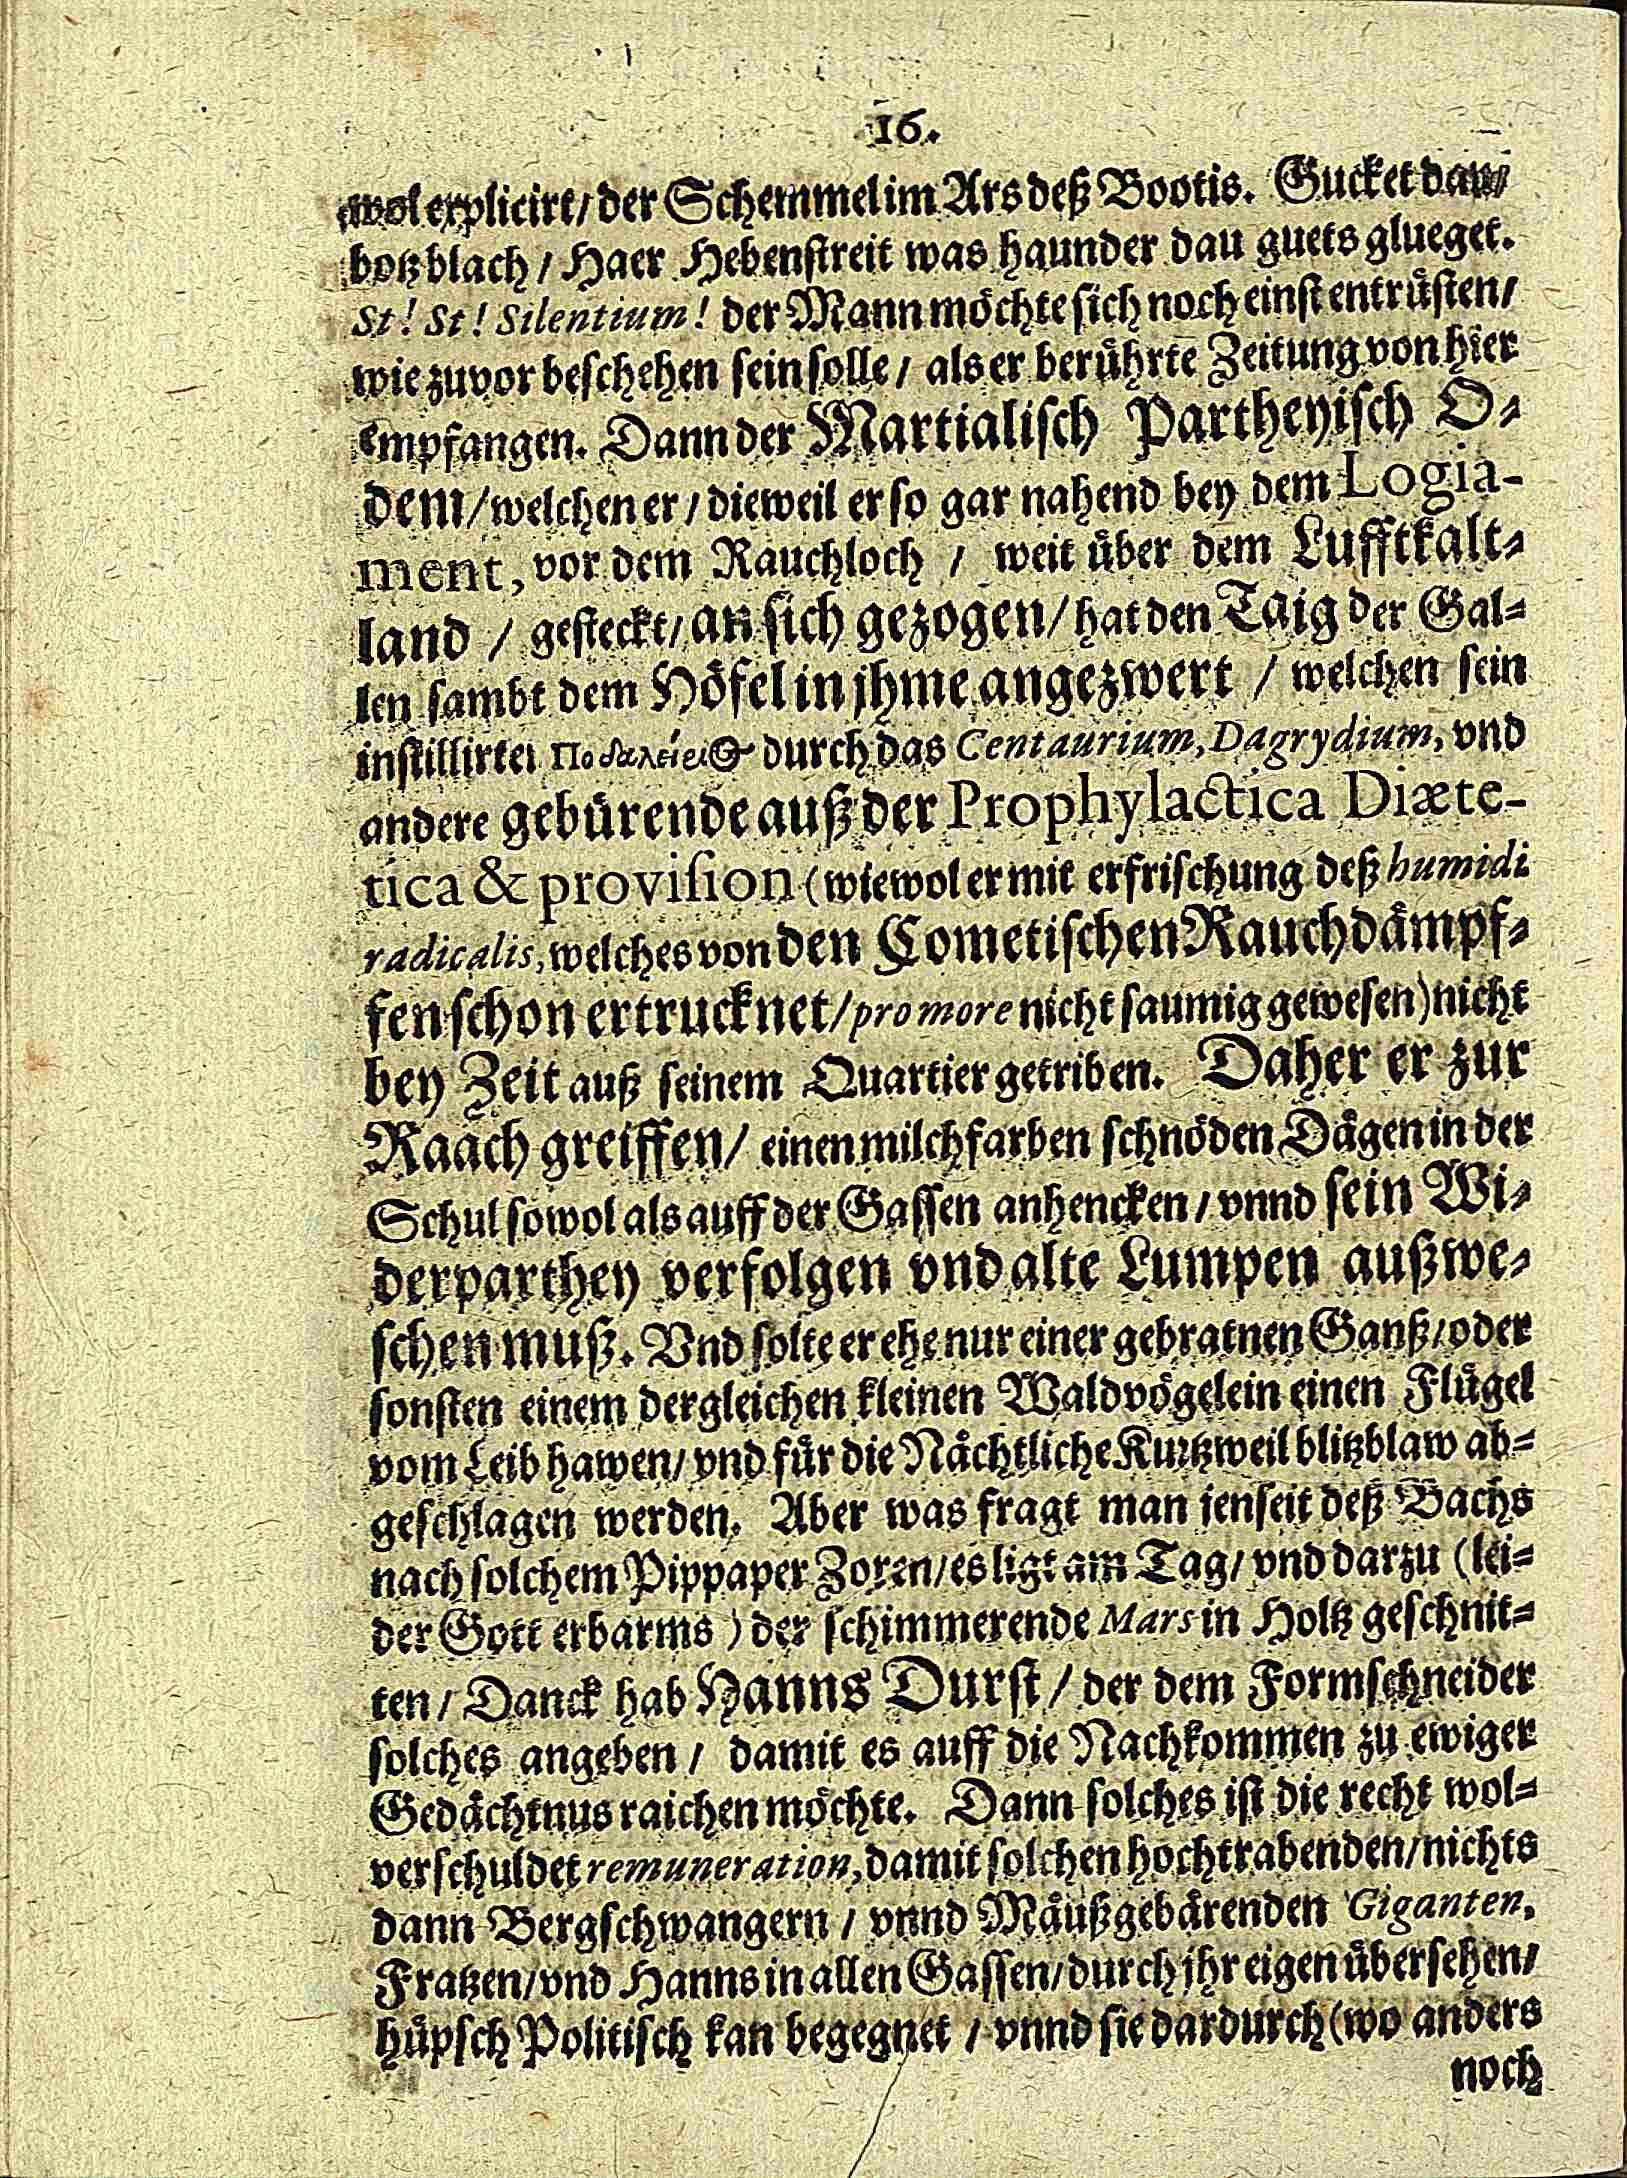 16.
wol explicirt/ der Schemmel im Ars deß Bootis. Gucket dau/
botzblach / Haer Hebenstreit was haunder dau guets glueget.
St! St! Silentium! der Mann möchte sich noch einst entrüsten/
wie zuvor beschehen sein solle / als er berührte Zeitung von hier
empfangen. Dann der Martialisch Partheyisch O-
dem/ welchen er / dieweil er so gar nahend bey dem Logia-
ment, vor dem Rauchloch / weit über dem Lufftkalt-
land / gesteckt/ an sich gezogen/ hat den Taig der Gal-
len sambt dem Höfel in jhme angezwert / welchen sein
instillirter durch das Centaurium, Dagrydium, vnd
andere gebürende auß der Prophylactica Diæte-
tica & provision (wiewol er mit erfrischung deß humidi
radicalis, welches von den Cometischen Rauchdämpf-
fen schon ertrucknet/ pro more nicht saumig gewesen) nicht
bey Zeit auß seinem Quartier getriben. Daher er zur
Raach greiffen/ einen milchfarben schnöden Dägen in der
Schul sowol als auff der Gassen anhencken / vnnd sein Wi-
derparthey verfolgen vnd alte Lumpen außwe-
schen muß. Vnd solte er ehe nur einer gebratnen Ganß/ oder
sonsten einem dergleichen kleinen Waldvögelein einen Flügel
vom Leib hawen/ vnd für die Nächtliche Kurtzweil blitzblaw ab-
geschlagen werden. Aber was fragt man jenseit deß Bachs
nach solchem Pippaper Zoren/ es ligt am Tag/ vnd darzu (lei-
der Gott erbarms) der schimmerende Mars in Holtz geschnit-
ten / Danck hab Hanns Durst / der dem Formschneider
solches angeben / damit es auff die Nachkommen zu ewiger
Gedächtnus raichen möchte. Dann solches ist die recht wol-
verschuldet remuneration, damit solchen hochtrabenden/ nichts
dann Bergschwangern / vnnd Mäußgebärenden Giganten,
Fratzen/ vnd Hanns in allen Gassen/ durch jhr eigen übersehen/
hüpsch Politisch kan begegnet / vnnd sie dardurch (wo anders
noch